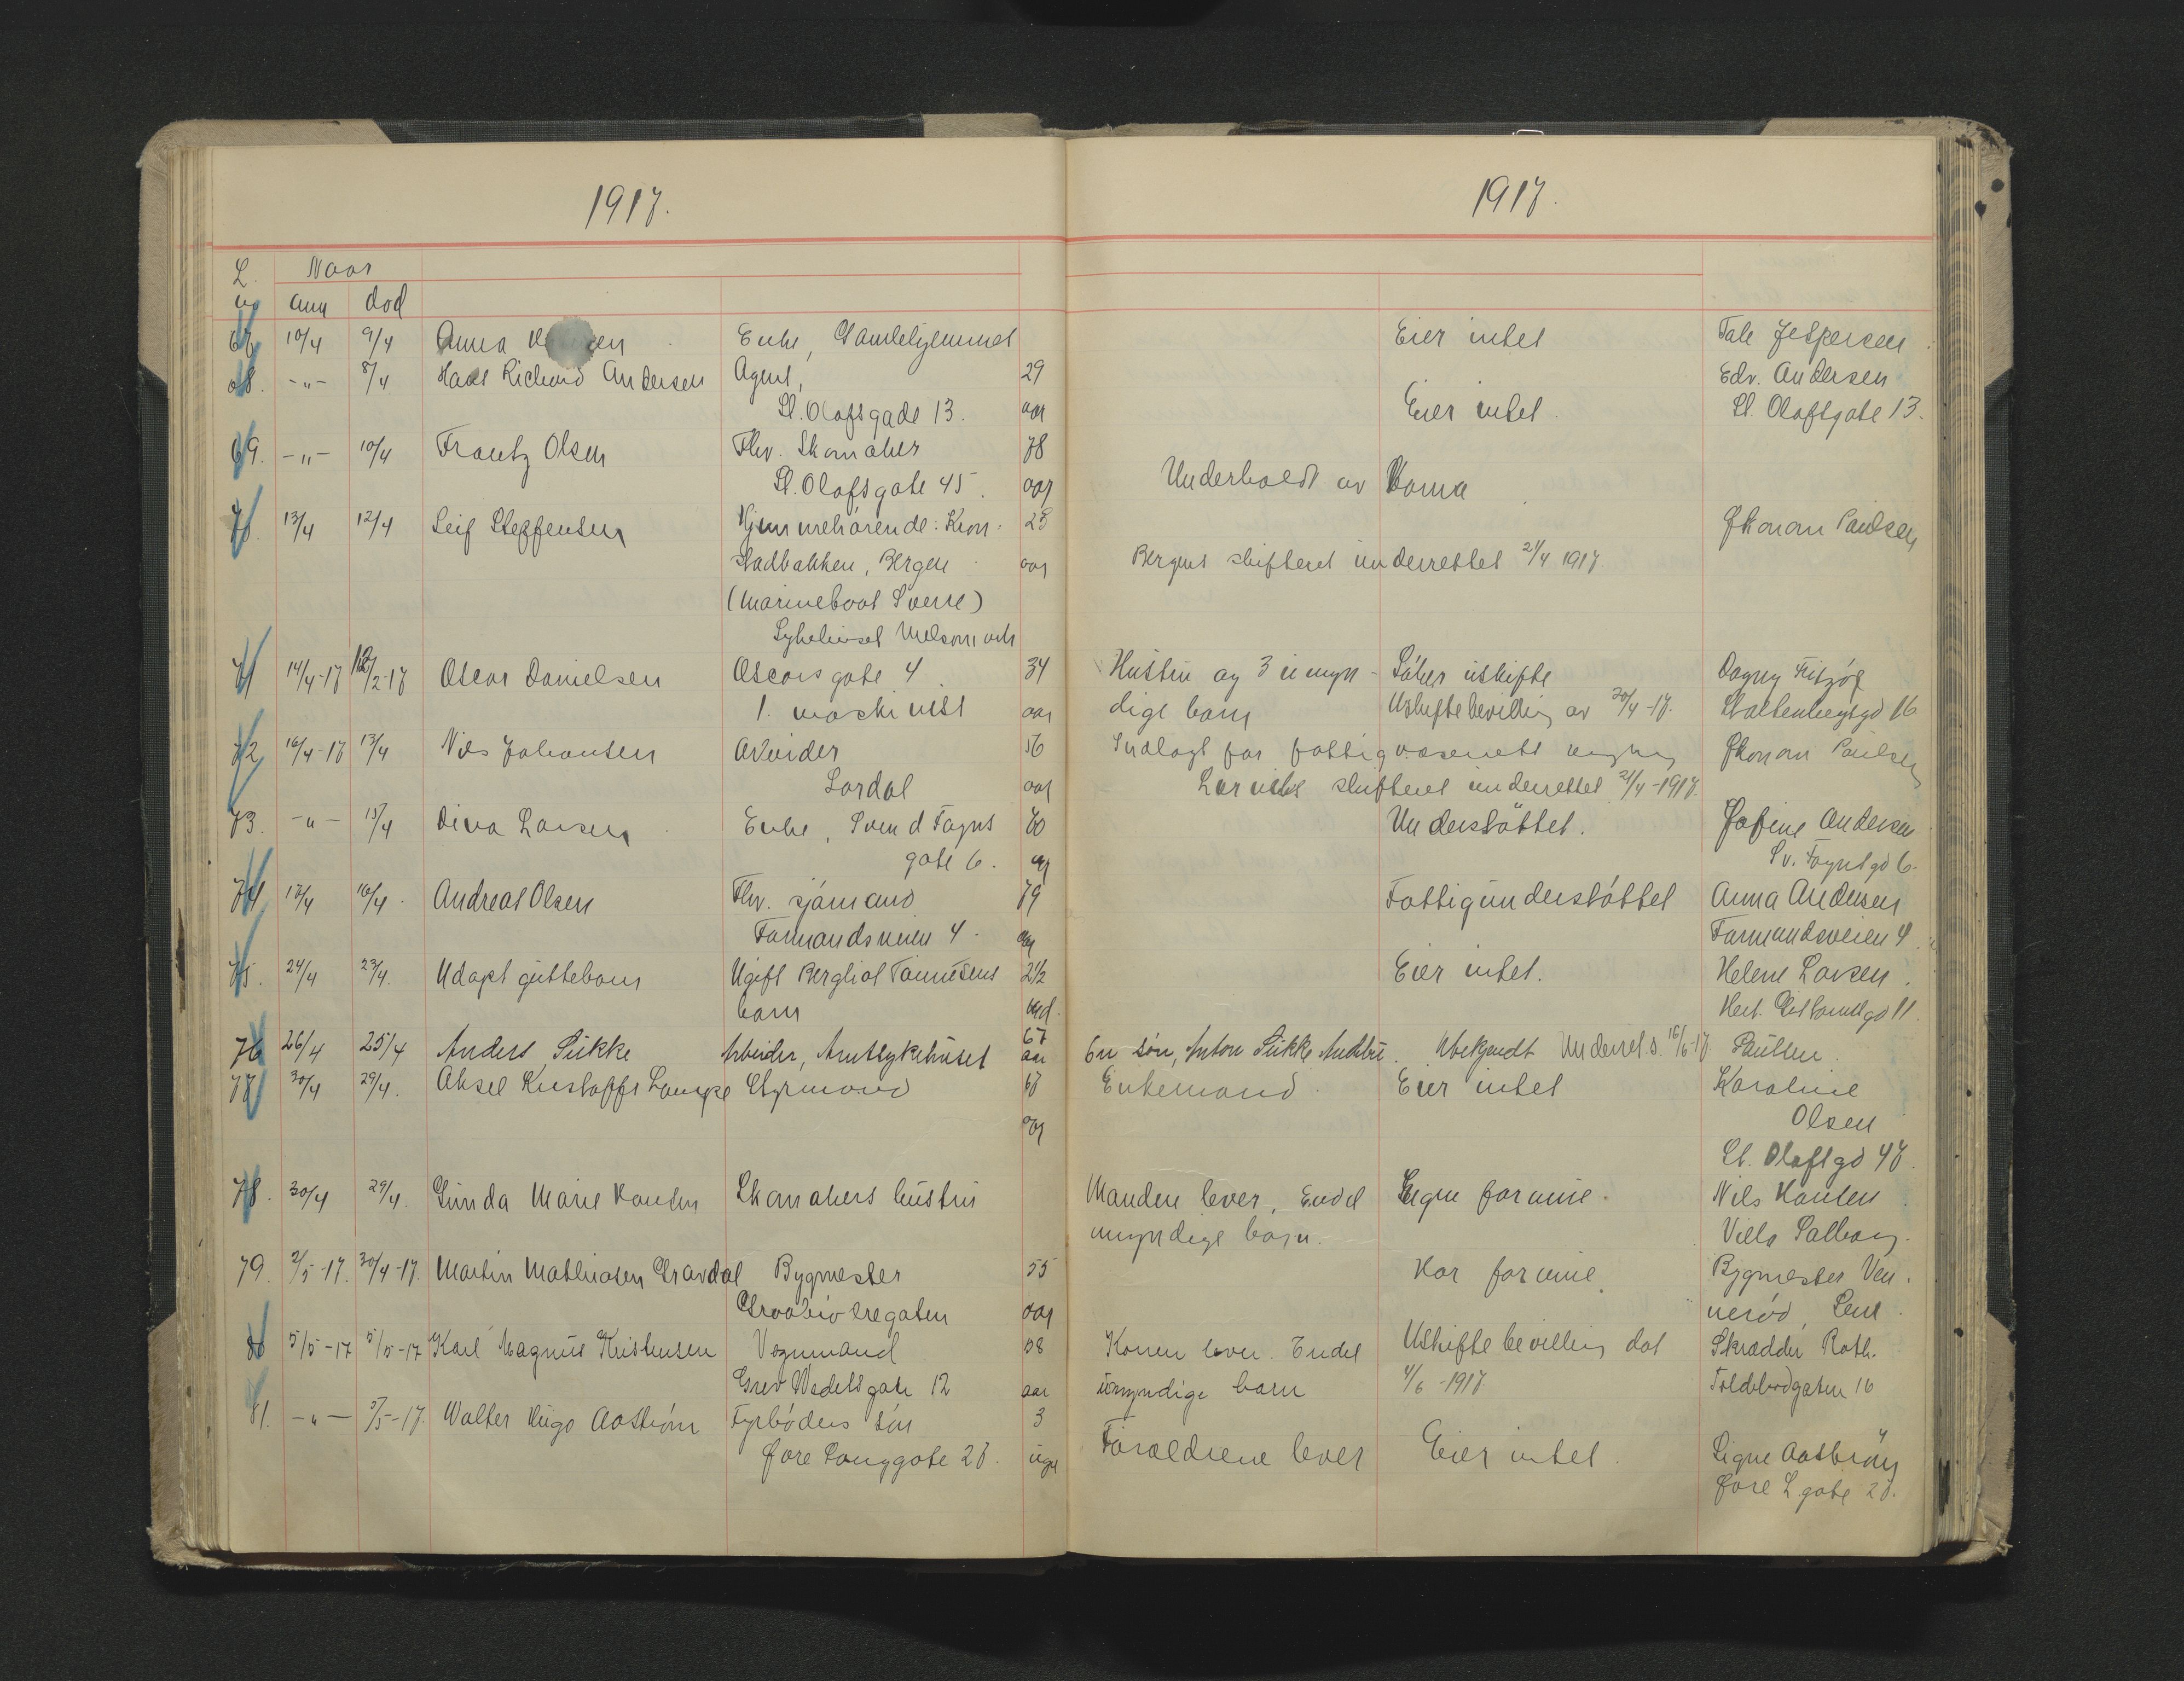 1917.
1917.
L. Naar
no anm död
67 10/4 9/4 Anna Enke, Gamlehjemmet Eier intet Tale Jespersen
68. -"- 8/4 Hans Richard Andersen Agent, 29 Edv. Andersen
St. Olafsgade 13. aar Eier intet. St. Olafsgate 13.
69. -"- 10/4 Frantz Olsen Fhv. Skomaker 78
St. Olafsgate 45. aar Underholdt av Kona
70. 13/4 12/4 Leif Steffensen Hjemmehörende: Kron- 28 Økonom Paulsen
stadbakken, Bergen aar Bergens skifteret underrettet 21/4 1917.
(Marinebaat Sverre)
Sykehuset Melsomvik
71 14/4-17 /2-17 Oscar Danielsen Oscarsgate 4. 34 Hustru og 3 umyn- Söker uskifte Dagny Fritzöe
1. maskinist aar dige barn Uskiftebevilling av 20/4-17. Stoltenbergsgd 16
72 16/4-17 13/4 Nils Johansen Arbeider 56 Indlagt for fattigvæsenets regning Økonom Paulsen
Lardal aar Larviks skifteret underrettet 21/4-1917.
73. -"- 15/4 Dina Larsen Enke, Svend Foyns 60 Understöttet. Josine Andersen
gate 6. aar Sv. Foynsgd 6.
74 17/4 16/4. Andreas Olsen Fhv. sjömand 79 Fattigunderstöttet Anna Andersen
Farmandsveien 4. aar Farmandsveien 4.
75. 24/4 23/4. Udöpt guttebarn Ugift Bergliot Tönnesens 2 1/2 Eier intet. Helene Larsen.
barn md.
76 26/4 25/4 Anders Sukke Arbeider, Amtsykehuset 67 aar En sön, Anton Sukke Andebu. Ubekjendt Underret. s. 16/6-17 Paulsen.
77 30/4 29/4. Aksel Kustoffs Lampe Styrmand 67 Enkemand. Eier intet Karoline
aar Olsen
St. Olafsgd 47.
78. 30/4 29/4. Gunda Marie Hansen Skomakers hustru Manden lever, Endel Ingen formue. Nils Hansen
myndige barn. Villa Solberg.
79. 2/5-17. 30/4-17. Martin Mathiasen Gravdal Bygmester 55 Har formue. Bygmester Ven-
aar neröd, Sem.
80 5/5-17 5/5-17 Karl Magnus Kristensen Vognmand 58 Konen lever. Endel Uskiftebevilling dat Skrædder Roth.
Grev Wedelsgate 12 aar umyndige barn 4/6-1917 Toldbodgaten 16
81. -"- 5/5-17. Walter Hugo Aaström Fyrböders sön 3 Forældrene lever Eier intet. Signe Aaström
Övre Langgate 28. uger Övre L.gate 28.